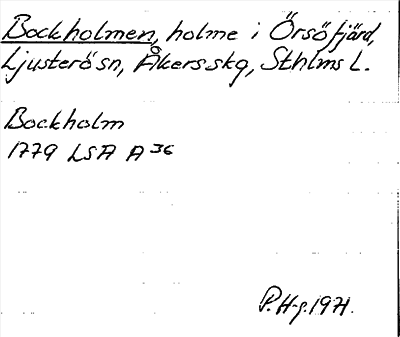 Bockholmen, holme i Örsöfjärd,
Ljusterö sn, Åkers skg, Sthlms L.
Bockholm
1779 LSA A 36
P. H-g. 1971.